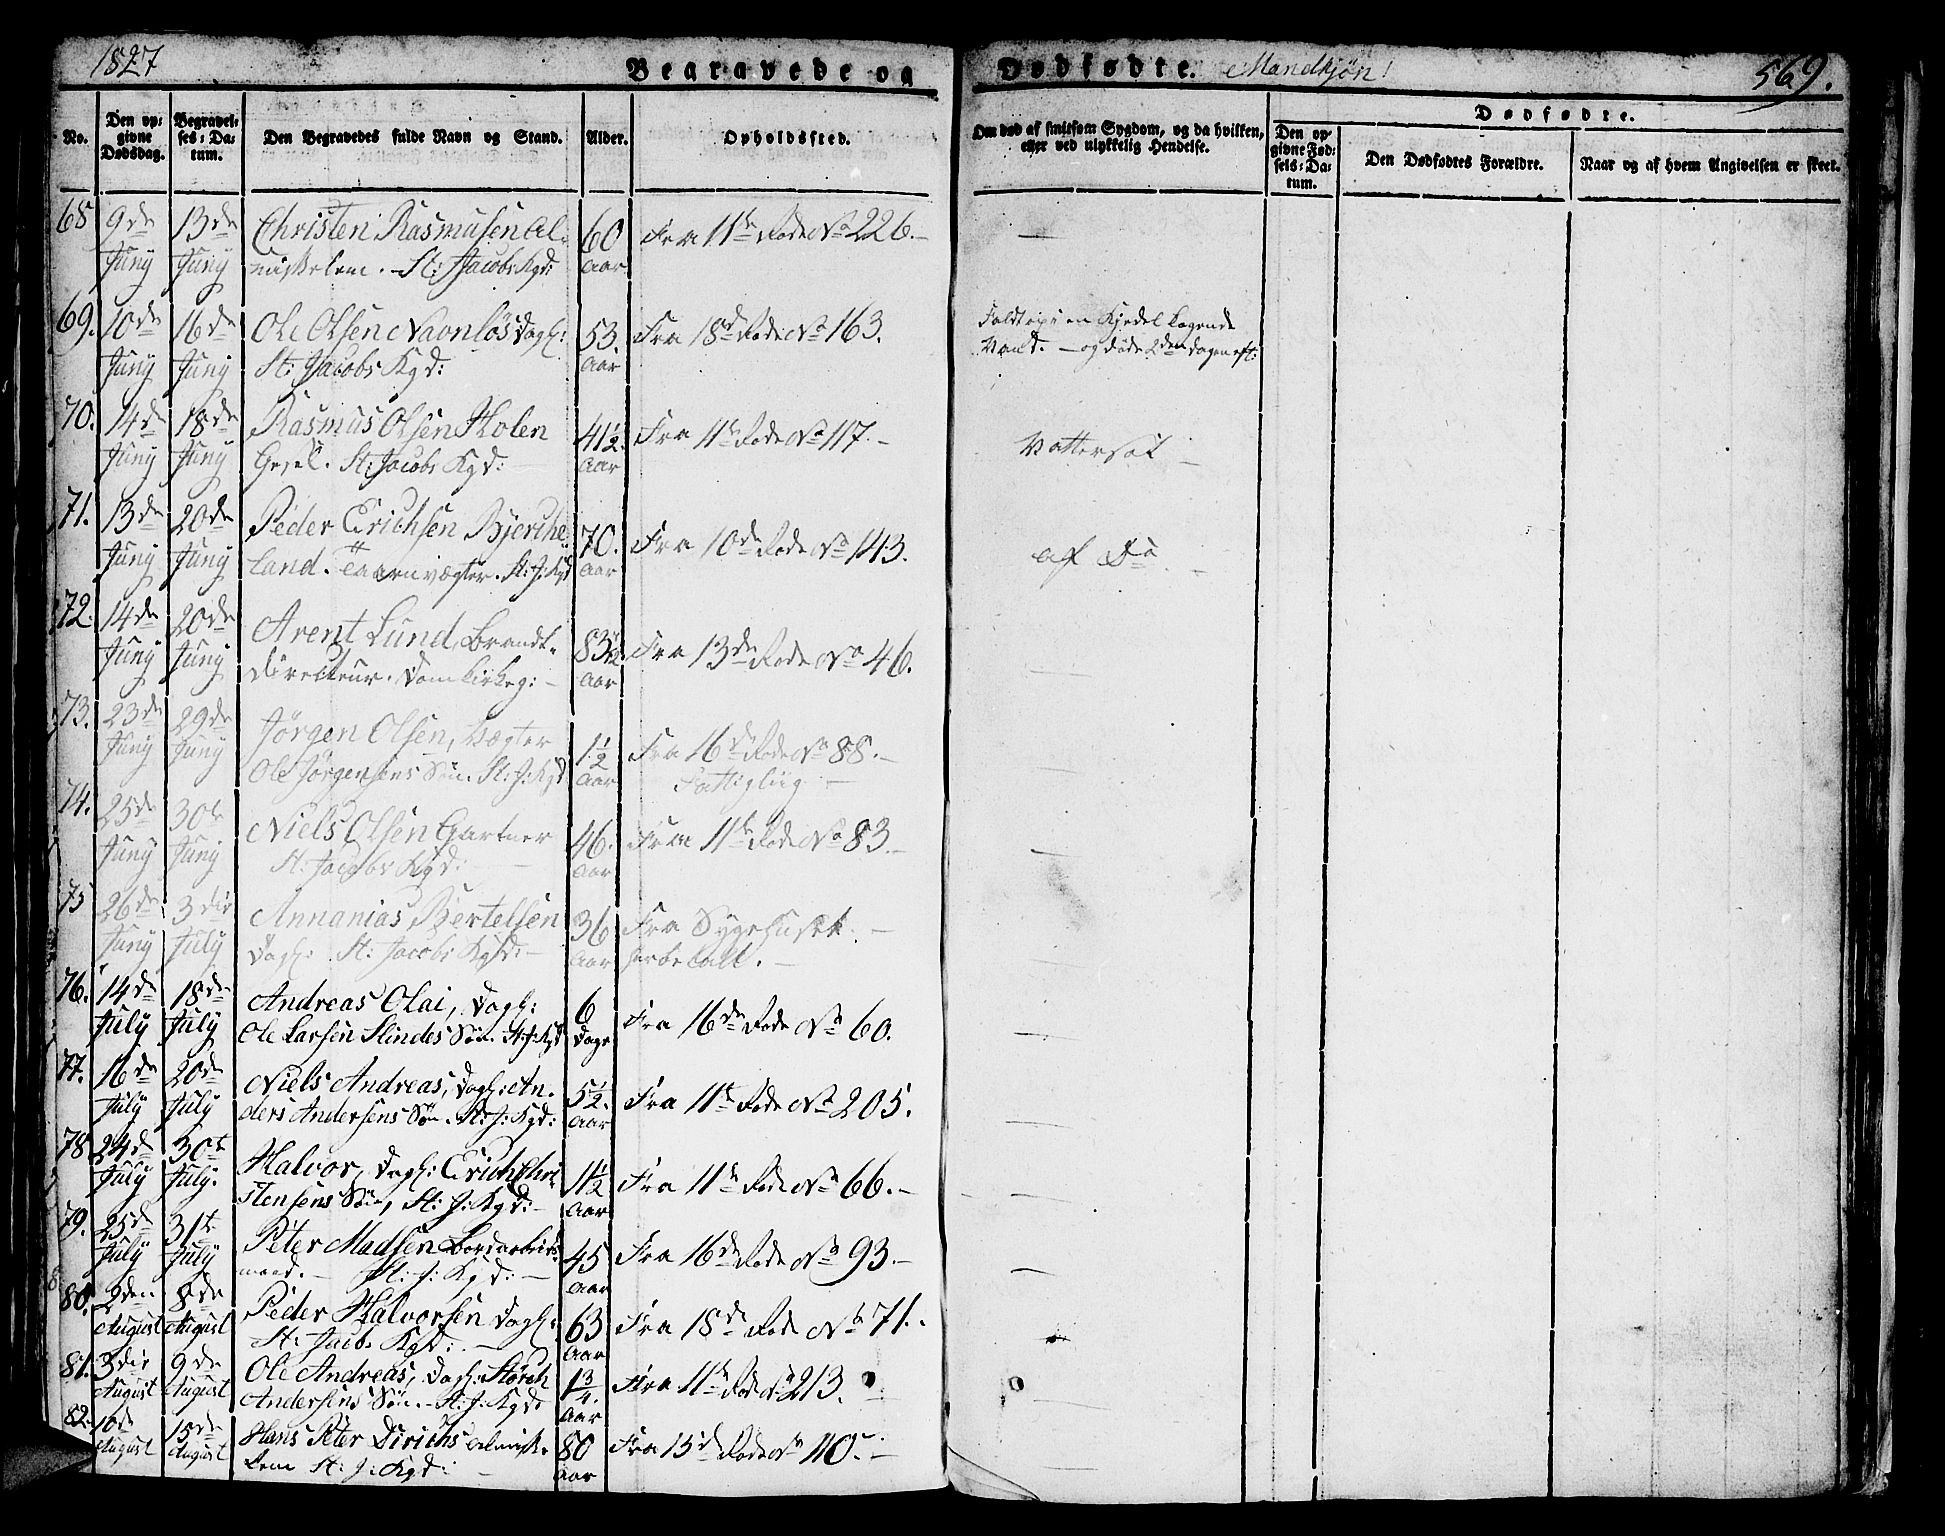 1827
Begravede og Dødfødte. Mandkjøn!
569.
No.
Den opgivne Dødsdag.
Begravelses-Datum.
Den Begravedes fulde Navn og Stand.
Alder.
Opholdssted.
Om død af smitsom Sygdom, og da hvilken, eller ved ulykkelig Hendelse.
Dødfødte.
Den opgivne Fødsels-Datum.
Den Dødfødtes Forældre.
Naar og af hvem Angivelsen er skeet.
68 9de Juny 13de Juny Christen Rasmusen Al- 60 Aar Fra 11te Rode No 226. —
miskelem. St: Jacobs Kgd:
69. 10de Juny 16de Juny Ole Olsen Navnløs Dagl: 53 Aar Fra 18de Rode No 163. Faldt i en Kjedel kogende
St: Jacobs Kgd: Vand. — og døde 2den Dagen eft:
70. 14de Juny 18de Juny Rasmus Olsen Holen 41½ Aar Fra 11te Rode No 117. — Vattersot —
Gesel. St: Jacobs Kgd:
71. 13de Juny 20de Juny Peder Erichsen Bjerche- 70. Aar Fra 10de Rode No 143. af Do
land. Taarnvægter. St: J: Kgd
72. 14de Juny 20de Juny Arent Lund, Brandt- 83½ Aar Fra 13de Rode No 46.
directeur. Domkirkeg: —
73. 23de Juny 29de Juny Jørgen Olsen, Vægter 1½ Aar Fra 16de Rode No 88. —
Ole Jørgensens Søn. St: J: Kgd Fattigliig —
74. 25de Juny 30te Juny Niels Olsen Gartner 46. Aar Fra 11te Rode No 83. —
St: Jacobs Kgd:
75 26de Juny 3die July Annanias Bertelsen 36 Aar Fra Sygehuset. —
Dagl: St: Jacobs Kgd: —
76. 14de July 18de July Andreas Olai, Dagl: 6 Dage Fra 16de Rode No 60.
Ole Larsen Slindes Søn. St: J: Kgd
77. 16de July 20de July Niels Andreas, Dagl: An- 5½ Aar Fra 11te Rode No 205.
ders Andersens Søn. St: J: Kgd:
78 24de July 30te July. Halvor, Dagl: Erich Chri- 1½ Aar Fra 11te Rode No 66. —
stensens Søn, St: J: Kgd: —
79. 25de July 31te July Peter Madsen Bordarbeids- 45 Aar Fra 16de Rode No 93. —
mand. — St: J: Kgd: —
80. 2den August 8de August Peder Halvorsen Dagl: 63 Aar Fra 18de Rode No 71. —
St: Jacobs Kgd: —
81. 3die August 9de August Ole Andreas, Dagl: Størch 1¾ Aar Fra 11te Rode No 213. —
Andersens Søn. St: J: Kgd:
82. 10de August 15de August Hans Peter Dirichs Almisk- 80 Aar Fra 15de Rode No 110. —
lem St: J: Kgd: —